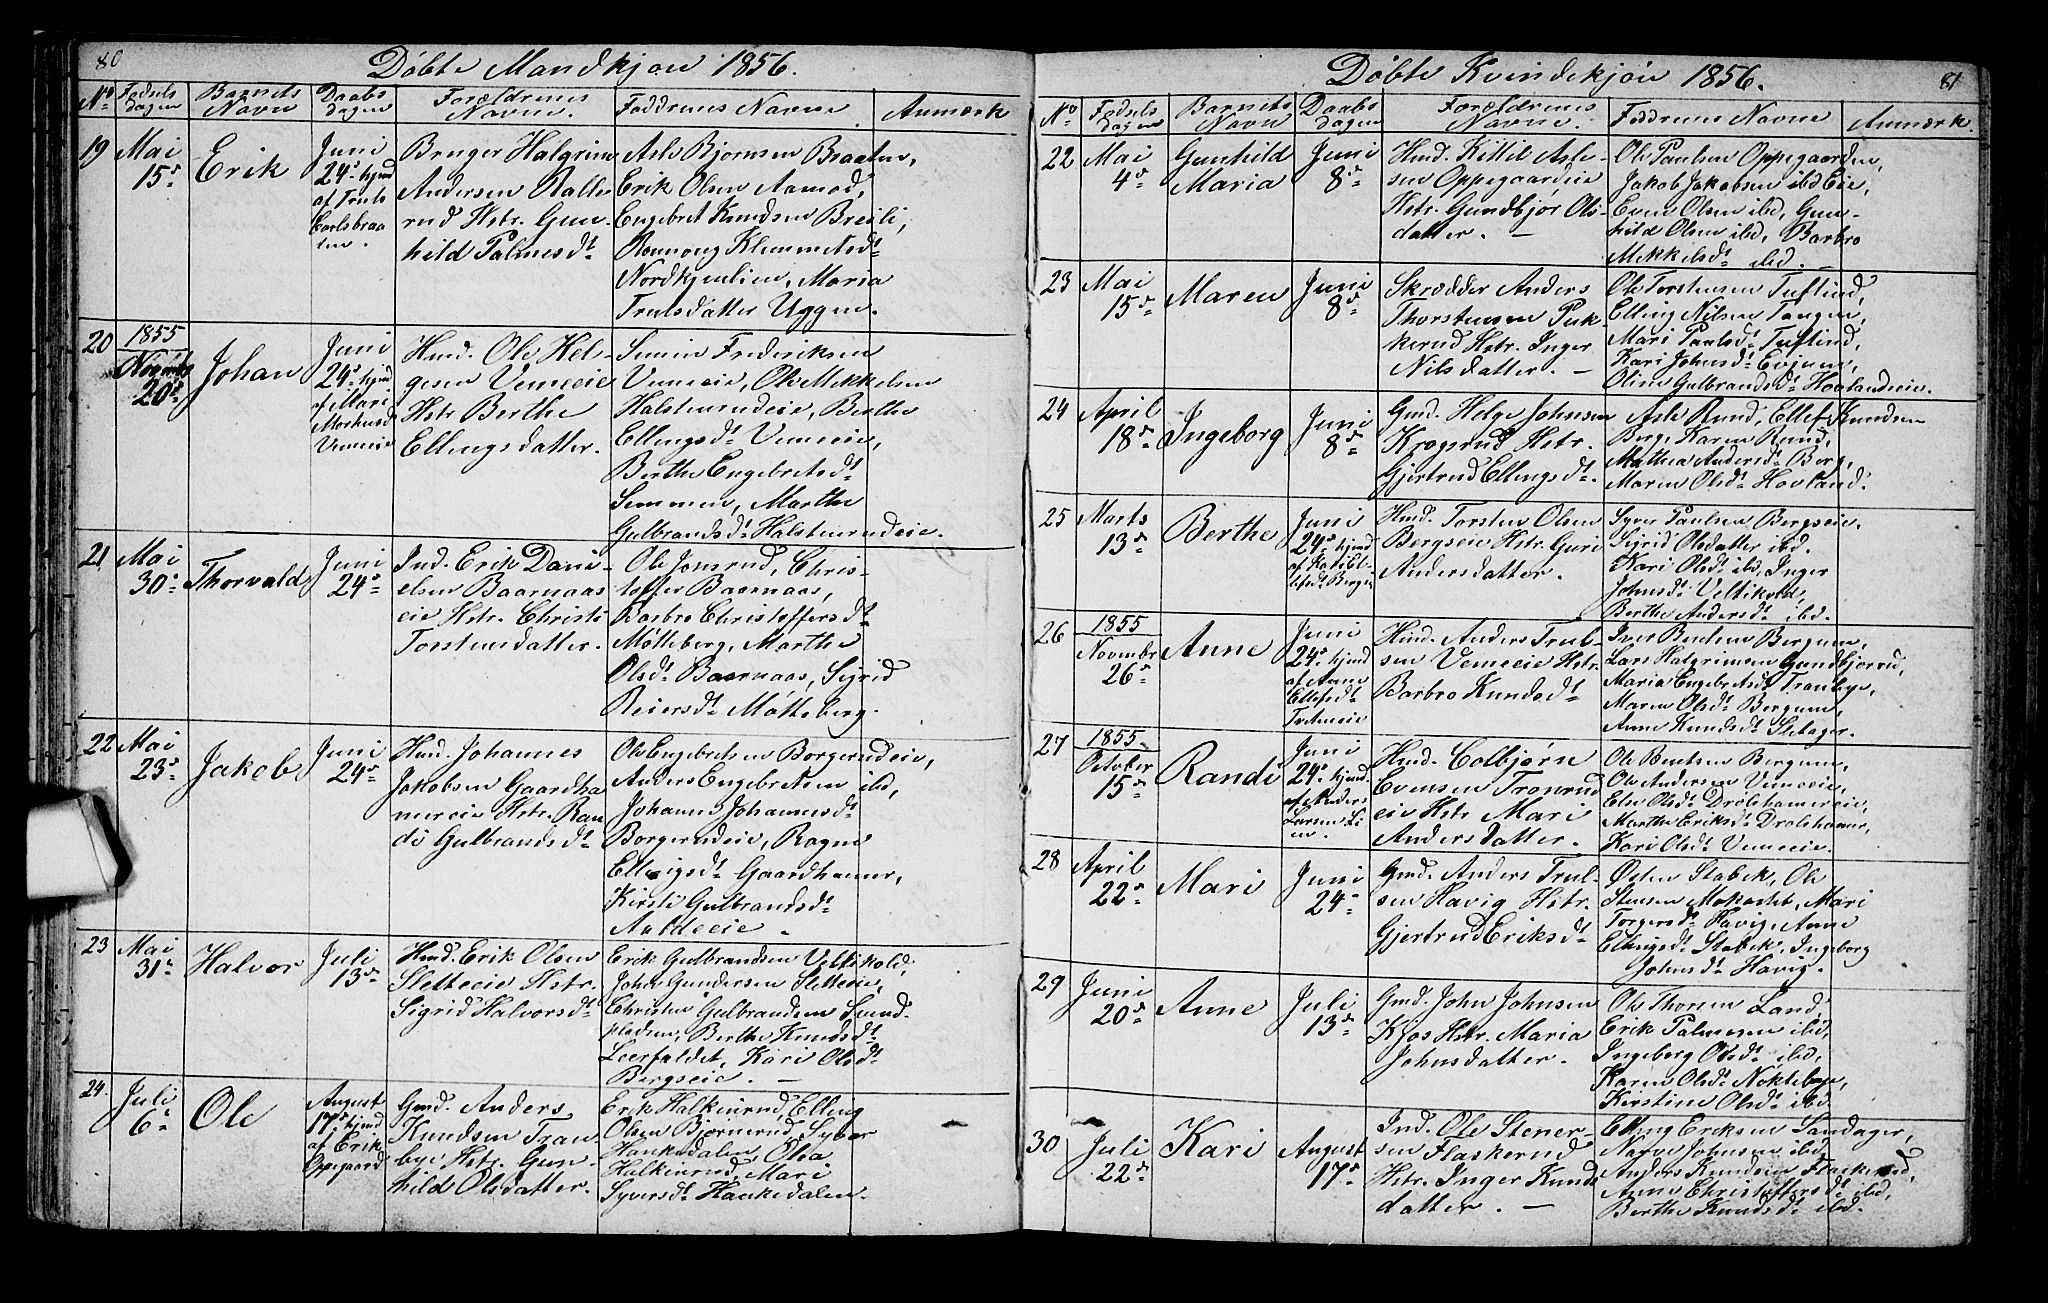 80
Døbte Mandkjøn 1856.
No
Fødsels dagen
Barnets Navn
Daabs dagen
Forældrenes Navne.
Faddrenes Navne
Anmærk
19
Mai 15de
Erik
Juni
24de hjmd
af Truls
Carlsbraa
ten.
Bruger Halgrim
Andersen Ralle
rud Hstr. Gun
hild Palmesdt
Asle Bjørnsen Braaten,
Erik Olsen Aamod,
Engebret Knudsen Breili,
Rønnoug Klemmetsdt
Nordkjenlien, Maria
Trulsdatter Uggen.
20
1855
Novemb
20de
Johan
Juni
24de hjmd
af Mari
Morhusd
Vemeeie
Hmd. Ole Hel-
gesen Vemeeie
Hstr Berthe
Ellingsdatter.
Simen Frederiksen
Vemeeie, Ole Mekkelsen
Halstenrudeie, Berthe
Ellingsdt Vemeeie,
Berthe Engebretsdt
Semmen, Marthe
Gulbrandsdt Halstenrudeie.
21
Mai
30te
Thorvald
Juni
24de
Ind. Erik Dani-
elsen Baarnaas
eie Hstr. Christi
Torstensdatter.
Ole Jonsrud, Chris-
toffer Baarnaas,
Barbro Christoffersdt
Møtteberg, Marthe
Olsdt Baarnaas, Sigrid
Reiersdt Møtteberg.
22
Mai
23de
Jakob
Juni
24de
Hmd. Johannes
Jakobsen Gaardha
mereie Hstr. Ran
di Gulbrandsdt
Ole Engebretsen Borgerudeie,
Anders Engebretsen ibd,
Johanne Johannesdt
Borgerudeie, Ragne
Ellingsdt Gaardhamer,
Kirsti Gulbrandsdt
Aaldeeie -
23
Mai
31te
Halvor
Juli
13de
Hmd. Erik Olsen
Sletteeie Hstr.
Sigrid Halvorsdt
Erik Gulbrandsen Veltikold,
John Gundersen Sletteeie,
Christen Gulbrandsen Sund-
pladsen, Berthe Knudsdt
Leerfaldet, Kari Olsdt
Bergseie. -
24.
Juli
6te
Ole
August
17de hjmd
af Erik
Oppegaard
Gmd. Anders
Knudsen Tran
bye Hstr. Gun
hild Olsdatter.
Erik Halkinrud, Elling
Olsen Bjørnerud, Syver
Hankedalen, Olia
Halkinrud, Mari
Syversdt Hankedalen.
81
Døbte Kvindekjøn 1856.
No
Fødsels dagen
Barnets Navn
Daabs dagen
Forældrenes Navne.
Faddrenes Navne
Anmærk.
22
Mai
4de
Gunhild
Maria
Juni
8de
Hmd. Kittil Asle-
sen Oppegaardeie
Hstr. Gundbjør Ols-
datter. -
Ole Paulsen Oppegaarden,
Jakob Jakobsen ibd Eie,
Even Olsen ibd, Gun-
hild Olsen ibd, Barbro
Mekkelsdt ibd. -
23
Mai
15de
Maren
Juni
8de
Skrædder Anders
Thorstensen Puk-
kerud Hstr. Inger
Nilsdatter. -
Ole Torstensen Tuftind,
Elling Nilsen Tangen,
Mari Paulsdt Tuftind,
Kari Johnsdt Evjum,
Oline Gulbrandsdt Hovlandeie.
24
April
18de
Ingeborg
Juni
8de
Gmd. Helge Johnsen
Krogsrud Hstr.
Gjertrud Ellingsdt.
Asle Rund, Ellef Knudsen
Berg, Karen Rund,
Mathea Andersdt Berg,
Maren Olsdt Hovland.
25
Marts
13de
Berthe
Juni
24de hjmd
af Kari El-
lefsdt Bergs
Hmd. Torsten Olsen
Bergseie Hstr. Guri
Andersdatter.
Syver Paulsen Bergseie.
Sigrid Olsdatter ibd.
Kari Olsdt ibd, Inger
Johnsdt Veltikold,
Berthe Andersdt ibd.
26
1855
Novembr
26de
Anne
Juni
24de hjmd
af Anne
Ellefsdt
Treteneie
Hmd. Anders Trul-
sen Vemeeie Hstr.
Barbro Knudsdt
Iver Bentsen Bergum,
Lars Halgrimsen Gundbjørrud,
Maria Engebretsdt Tranbye,
Maren Olsdt Bergum,
Anne Knudsdt Sletager.
27
1855
October
15de
Randi
Juni
24de hjmd.
af Anders
Larsen Li
en.
Hmd. Colbjørn
Evensen Tronrud
eie Hstr Mari
Andersdatter.
Ole Bentsen Bergum,
Ole Andersen Vemeeie,
Else Olsdt Drolshamereie,
Marthe Eriksdt Drolshamer,
Kari Olsdt Vemeeie.
28
April
22de
Mari
Juni
24de
Gmd. Anders Trul-
sen Havig Hstr.
Gjertrud Eriksdt
Østen Stabek, Ole
Stensen Mokastet, Mari
Torgersdt Havig, Anne
Ellingsdt Stabek, Ingeborg
Johnsdt Havig.
29
Juni
20de
Anne
Juli
13de
Gmd. John Johnsen
Kjos Hstr. Maria
Johnsdatter.
Ole Thoresen Land,
Erik Palmesen ibd,
Ingeborg Olsdt ibd,
Karen Olsdt Nøklebye,
Kirstine Olsdt ibd.
30
Juli
22de
Kari
August
17de
Ind. Ole Stener-
sen Flaskerud
Hstr. Inger Knuds
datter. -
Elling Eriksen Sandager,
Narve Johnsen ibd,
Anders Knudsen Flaskerud,
Anne Christoffersdt ibd,
Berthe Knudsdt ibd.